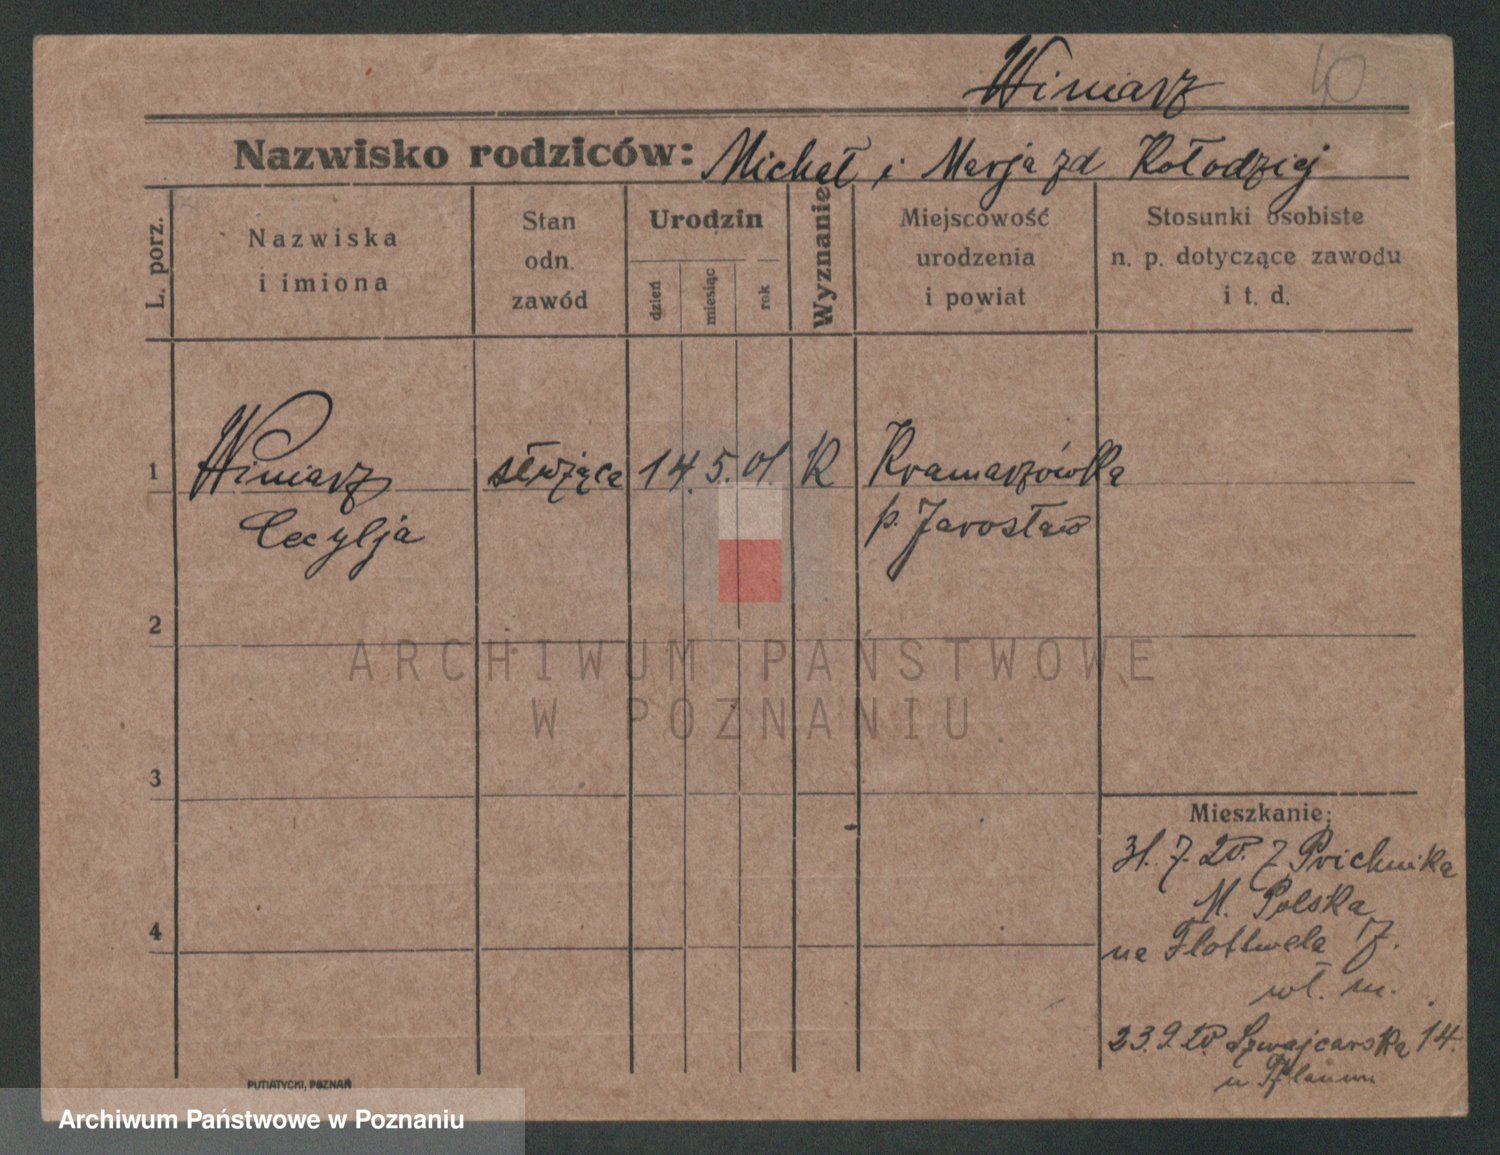 Winiarz 40
Nazwisko rodziców: Michał i Marja zd Kołodziej
L. porz.
Nazwiska
i imiona
Stan
odn.
zawód
Urodzin
dzień
miesiąc
rok
Wyznanie
Miejscowość
urodzenia
i powiat
Stosunki osobiste
n. p. dotyczące zawodu
i t. d.
1 Winiarz służąca 14. 5. 01. K Kramarzówka
Cecylja p. Jarosław
2
ARCHIWUM PAŃSTWOWE
W POZNANIU
3
Mieszkanie:
31. 7. 20. z Prichnika
M. Polska
na Flottwela 17.
wł. m.
4
23. 9. 20. Szwajcarska 14.
u
PUTIATYCKI, POZNAŃ
Archiwum Państwowe w Poznaniu